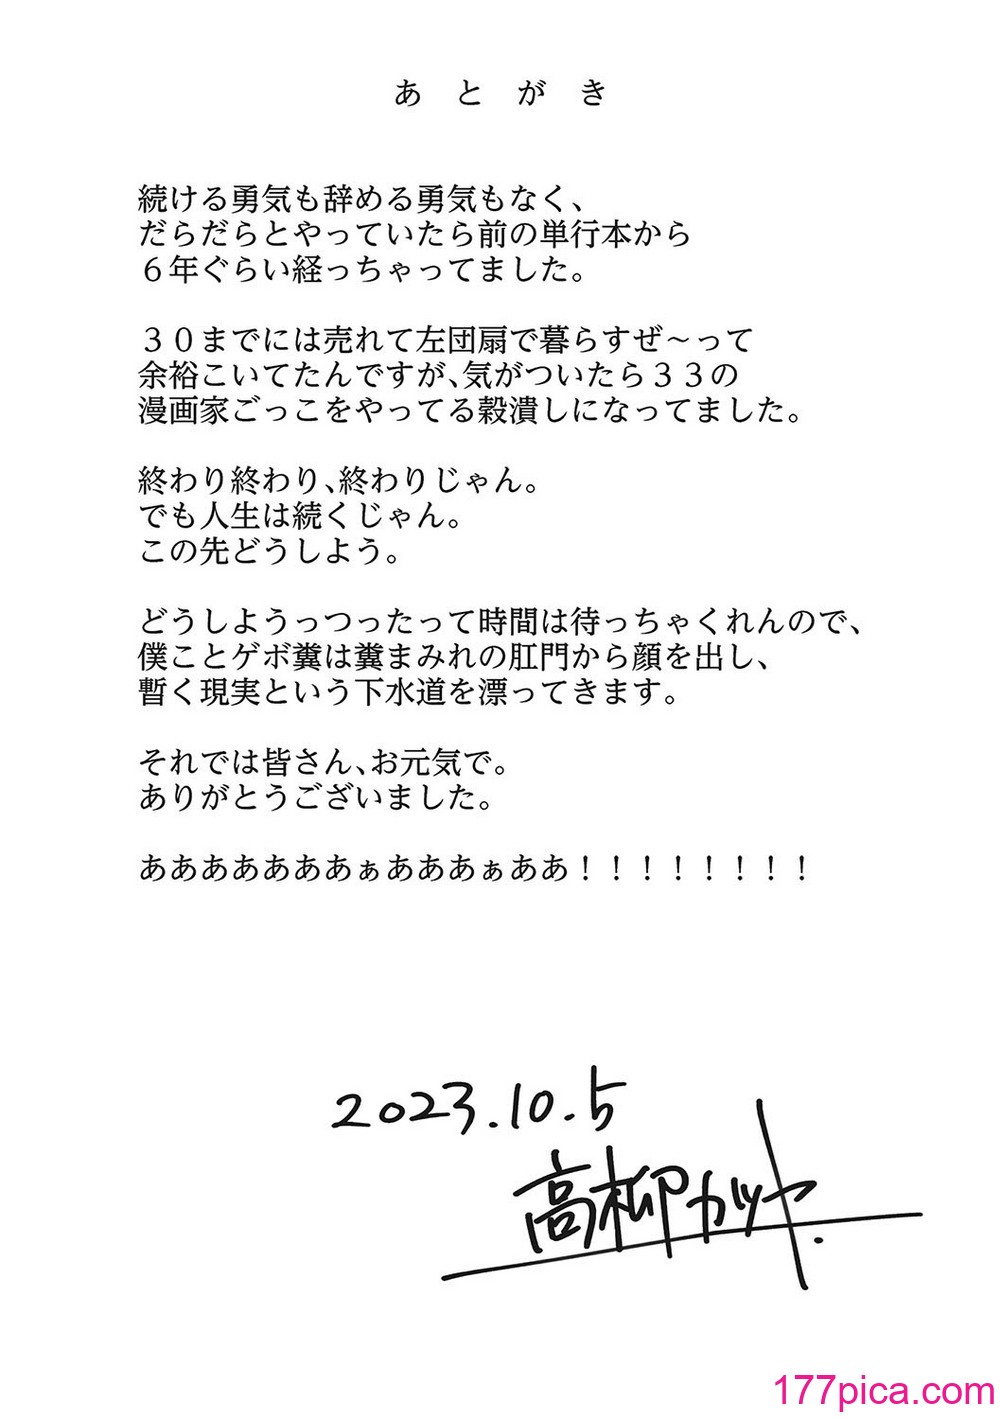 あとがき
続ける勇気も辞める勇気もなく、
だらだらとやっていたら前の単行本から
６年ぐらい経っちゃってました。
３０までには売れて左団扇で暮らすぜ～って
余裕こいてたんですが、気がついたら３３の
漫画家ごっこをやってる穀潰しになってました。
終わり終わり、終わりじゃん。
でも人生は続くじゃん。
この先どうしよう。
どうしようっつったって時間は待っちゃくれんので、
僕ことゲボ糞は糞まみれの肛門から顔を出し、
暫く現実という下水道を漂ってきます。
それでは皆さん、お元気で。
ありがとうございました。
あああああああぁあああぁああ！！！！！！！！
2023.10.5
高柳カツヤ.
177pica.com